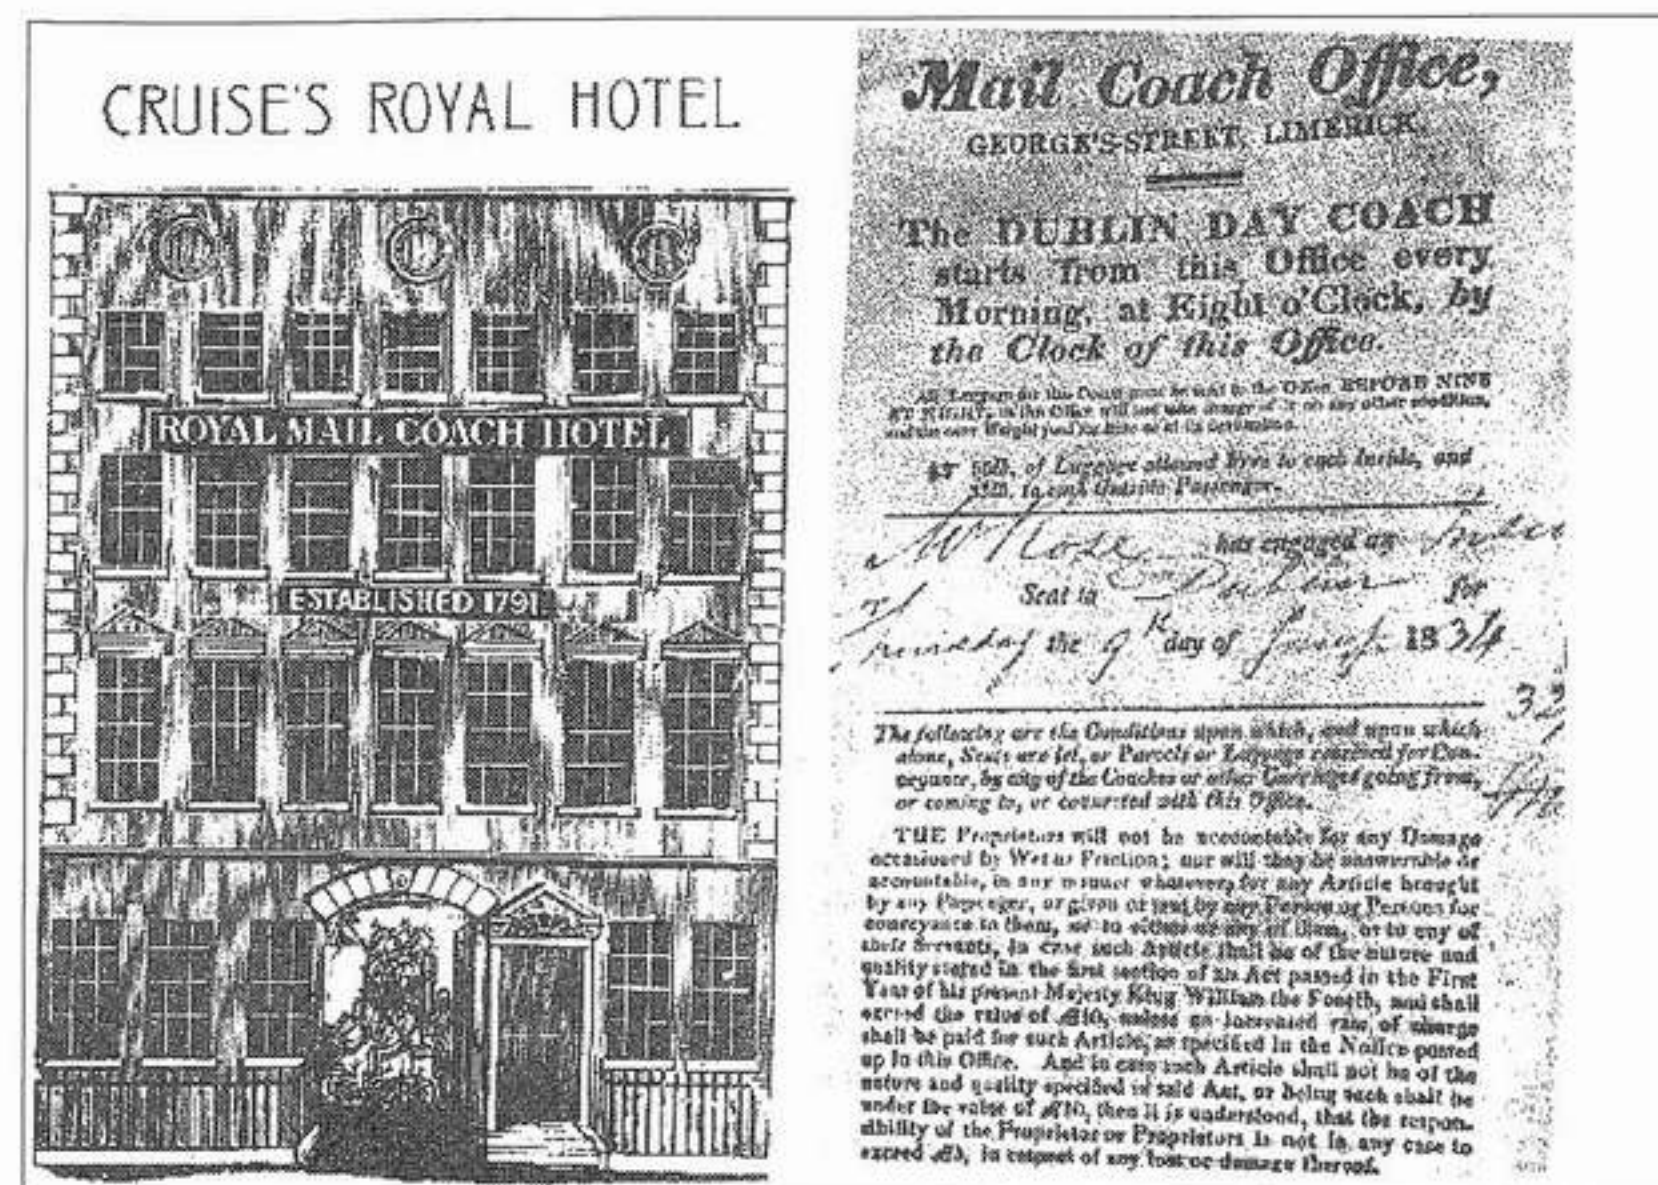 CRUISE'S ROYAL HOTEL
ROYAL MAIL COACH HOTEL
ESTABLISHED 1791
Mail Coach Office,
GEORGE'S-STREET, LIMERICK.
The DUBLIN DAY COACH
starts from this Office every
Morning, at Eight o'Clock, by
the Clock of this Office.
All Luggage for this Coach must be sent to the Office BEFORE NINE
AT NIGHT, as the Office will not take charge of it on any other condition,
and the over Weight paid for here or at its destination.
of Luggage allowed Free to each Inside, and
to each Outside Passenger.
Mr Rose has engaged an Inside
Seat in Dublin for
the 9th day of 1834
32
The following are the Conditions upon which, and upon which
alone, Seats are let, or Parcels or Luggage received for Con-
veyance, by any of the Coaches or other Carriages going from,
or coming to, or connected with this Office.
THE Proprietors will not be accountable for any Damage
occasioned by Wet or Friction; nor will they be answerable or
accountable, in any manner whatever, for any Article brought
by any Passenger, or given or sent by any Person or Persons for
conveyance to them, or to either or any of them, or to any of
their Servants, in case such Article shall be of the nature and
quality stated in the first section of an Act passed in the First
Year of his present Majesty King William the Fourth, and shall
exceed the value of £10, unless an increased rate of charge
shall be paid for such Article, as specified in the Notice posted
up in this Office. And in case such Article shall not be of the
nature and quality specified in said Act, or being such shall be
under the value of £10, then it is understood, that the respon-
sibility of the Proprietor or Proprietors is not in any case to
exceed £5, in respect of any lost or damage thereof.